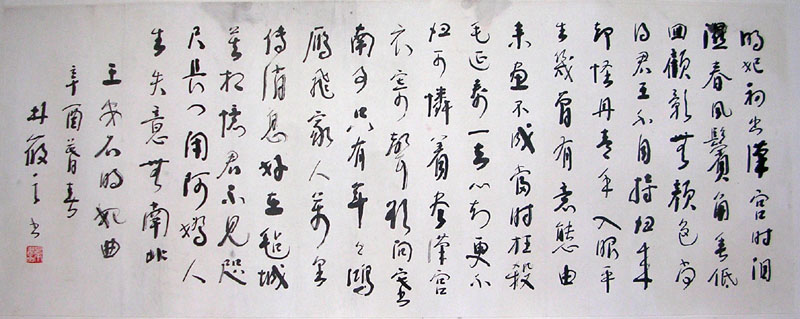 明妃初出漢宮时泪
濕春風鬢角垂低
回顧影無顏色尚
得君王不自持歸来
却怪丹青手入眼平
生幾曾有意態由
来畫不成當时枉殺
毛延壽一去心知更不
歸可憐着盡漢宮
衣寄聲欲問塞
南事只有年々鴻
雁飛家人萬里
傳消息好在氈城
莫相憶君不見咫
尺長門閉阿嬌人
生失意無南北
王安石明妃曲
辛酉暮春
林筱之書